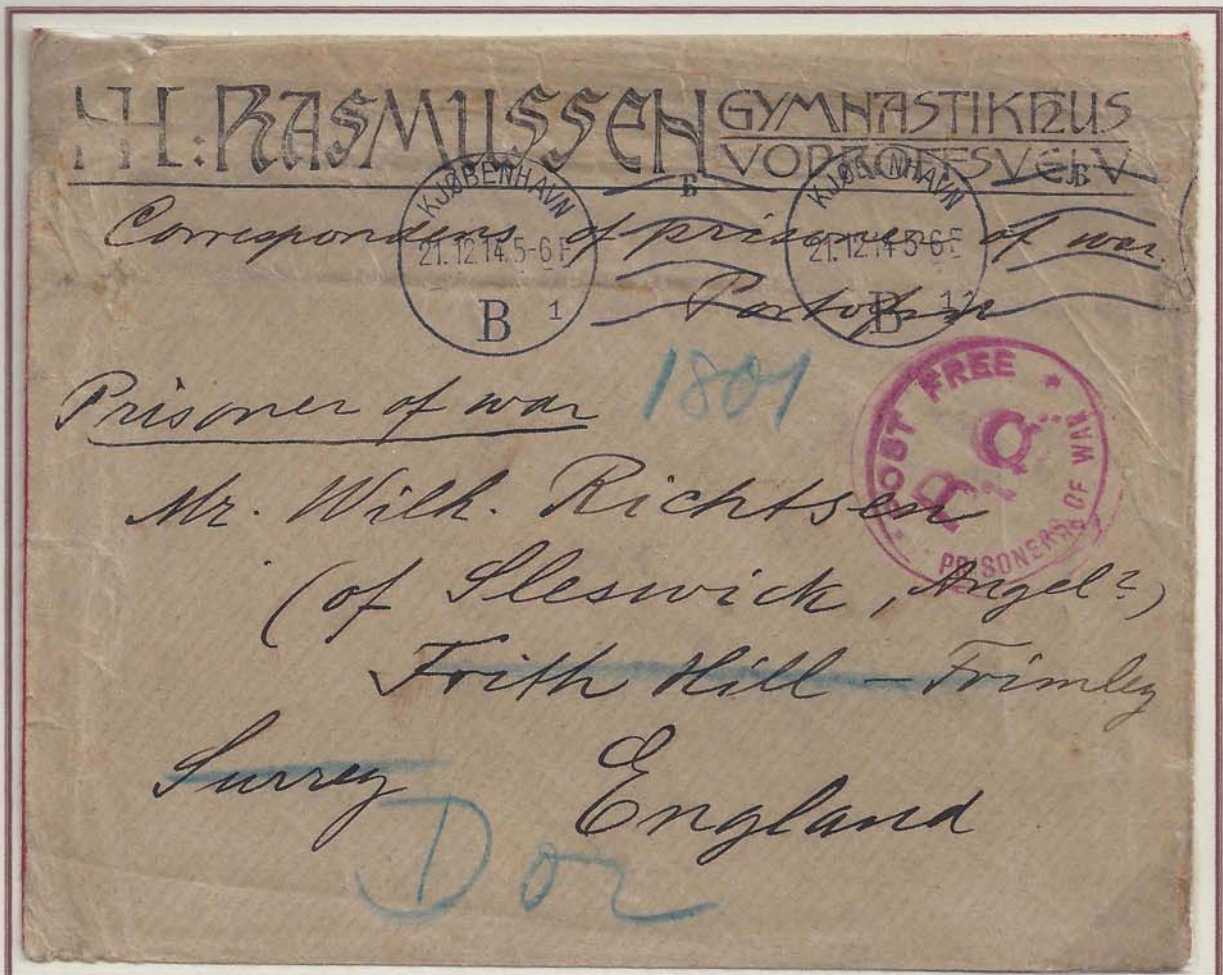 H: RASMUSSEN GYMNASTIKHUS
VODROFFSVEJ V
KJØBENHAVN
21.12.14.5-6 F
B 1
B
KJØBENHAVN
21.12.14 5-6 F
B 1
B
Correspondens of prisoner of war.
Portofri
Prisoner of war 1801
POST FREE
PRISONERS OF WAR
Mr. Wilh. Richtsen
(of Sleswick, Angel?)
Frith Hill – Frimley
Surrey England
Dor